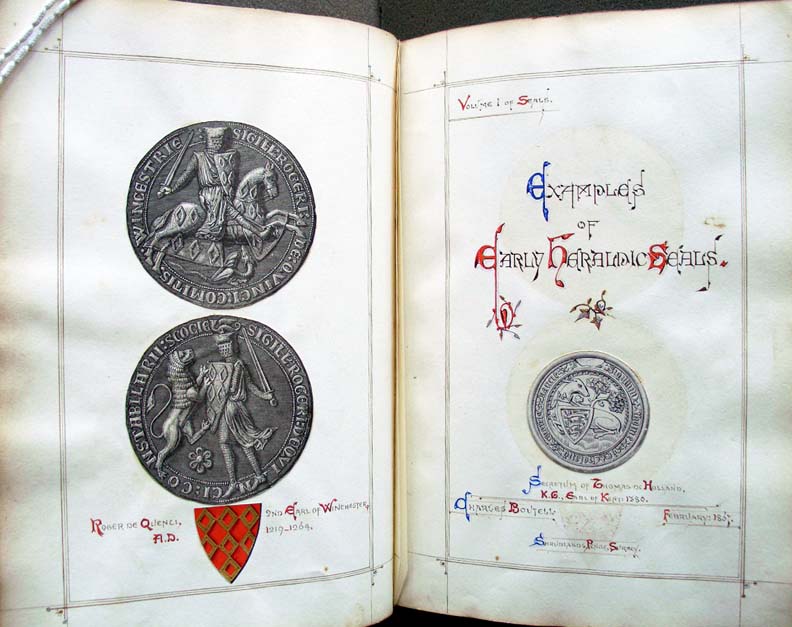 SIGILL ROGERI DE QVINCI COMITIS WINCESTRIE
SIGILL ROGERI DE QVINCI CONSTABILARII SCOCIE
ROGER DE QUENCI,
2ND EARL OF WINCHESTER,
A.D.
1219–1264.
VOLUME I OF SEALS.
EXAMPLES
OF
EARLY HERALDIC SEALS.
SECRETUM OF THOMAS DE HOLLAND,
K.G., EARL OF KENT: 1380.
CHARLES BOUTELL
FEBRUARY: 1867.
SURREY.